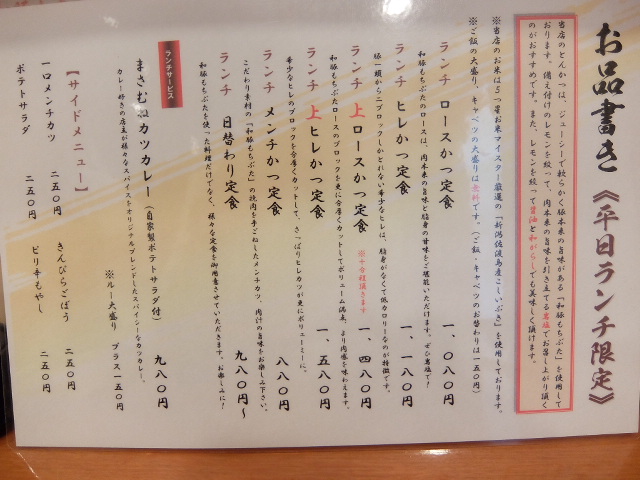 お品書き《平日ランチ限定》
当店のとんかつは、ジューシーで軟らかく豚本来の旨味がある「和豚もちぶた」を使用して
おります。備え付けのレモンを絞って、肉本来の旨味を引き立てる岩塩でお召し上がり頂く
のがおすすめです。また、レモンを絞って醤油と和がらしでも美味しく頂けます。
※当店のお米は五つ星お米マイスター厳選の「新潟佐渡島産こしいぶき」を使用しております。
※ご飯の大盛り、キャベツの大盛りは無料です。(ご飯・キャベツのお替わりは一五〇円)
ランチ ロースかつ定食 一、〇八〇円
和豚もちぶたのロースは、肉本来の旨味と脂身の甘味をご堪能いただけます。ぜひ岩塩で!
ランチ ヒレかつ定食 一、一八〇円
豚一頭から二ブロックしかとれない希少なヒレは、脂身がなくて低カロリーなのが特徴です。
ランチ 上ロースかつ定食 ※十分程頂きます 一、四八〇円
和豚もちぶたロースのブロックを更に分厚くカットしてボリューム満点、より肉感を味わえます。
ランチ 上ヒレかつ定食 一、五八〇円
希少なヒレのブロックを分厚くカットして、さっぱりヒレかつが更にボリューミーに。
ランチ メンチかつ定食 八八〇円
こだわり素材の「和豚もちぶた」の挽肉を手ごねしたメンチカツ、肉汁の旨味をお楽しみ下さい。
ランチ 日替わり定食 九八〇円〜
和豚もちぶたを使った料理だけでなく、様々な定食を御用意させていただきます。お楽しみに!
ランチサービス
まさむねカツカレー(自家製ポテトサラダ付) 九八〇円
カレー好きの店主が様々なスパイスをオリジナルブレンドしたスパイシーなカツカレー。
※ルー大盛り プラス一五〇円
【サイドメニュー】
一口メンチカツ 二五〇円 きんぴらごぼう 二五〇円
ポテトサラダ 二五〇円 ピリ辛もやし 二五〇円